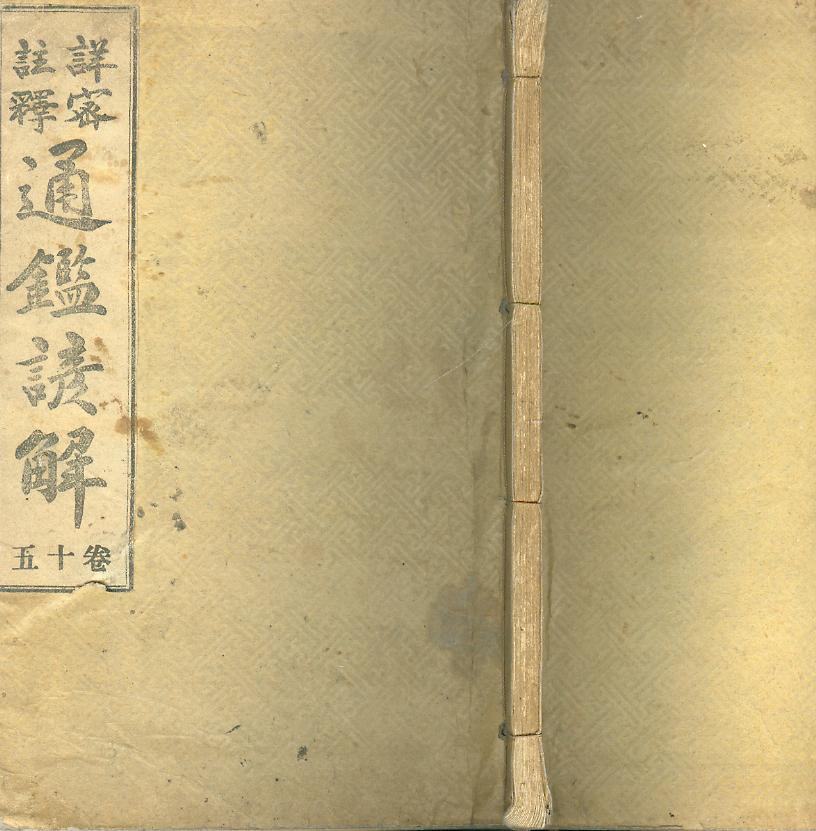 詳密
註釋
通鑑諺解
卷十五